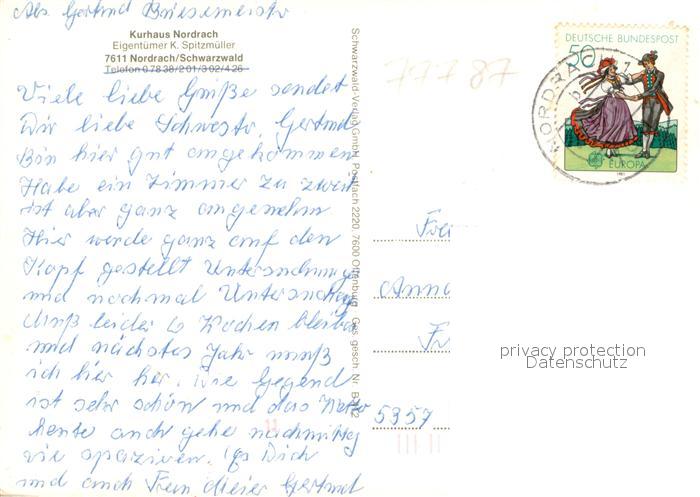 Abs. Gertrud
Kurhaus Nordrach
Eigentümer K. Spitzmüller
7611 Nordrach/Schwarzwald
Telefon 0 78 38/2 01/3 02/4 26
Viele liebe Grüße sendet
Dir liebe Schwestr. Gertrud
Bin hier gut angekommen
Habe ein Zimmer zu zweit
ist aber ganz angenehm
Hier werde ganz auf den
Kopf gestellt Untersuchung
und nochmal Untersuchung
Muß leider 6 Wochen bleiben
und nächstes Jahr muß
ich hier her. Die Gegend
ist sehr schön und das
heute auch gehe nachmittag
spaziren. Dich
und auch Gertrud
Schwarzwald-Verlag GmbH, Postfach 2220, 7600 Offenburg Ges. gesch. Nr.
77787
DEUTSCHE BUNDESPOST
50
EUROPA
1981
NORDRA
Anna
5357
privacy protection
Datenschutz